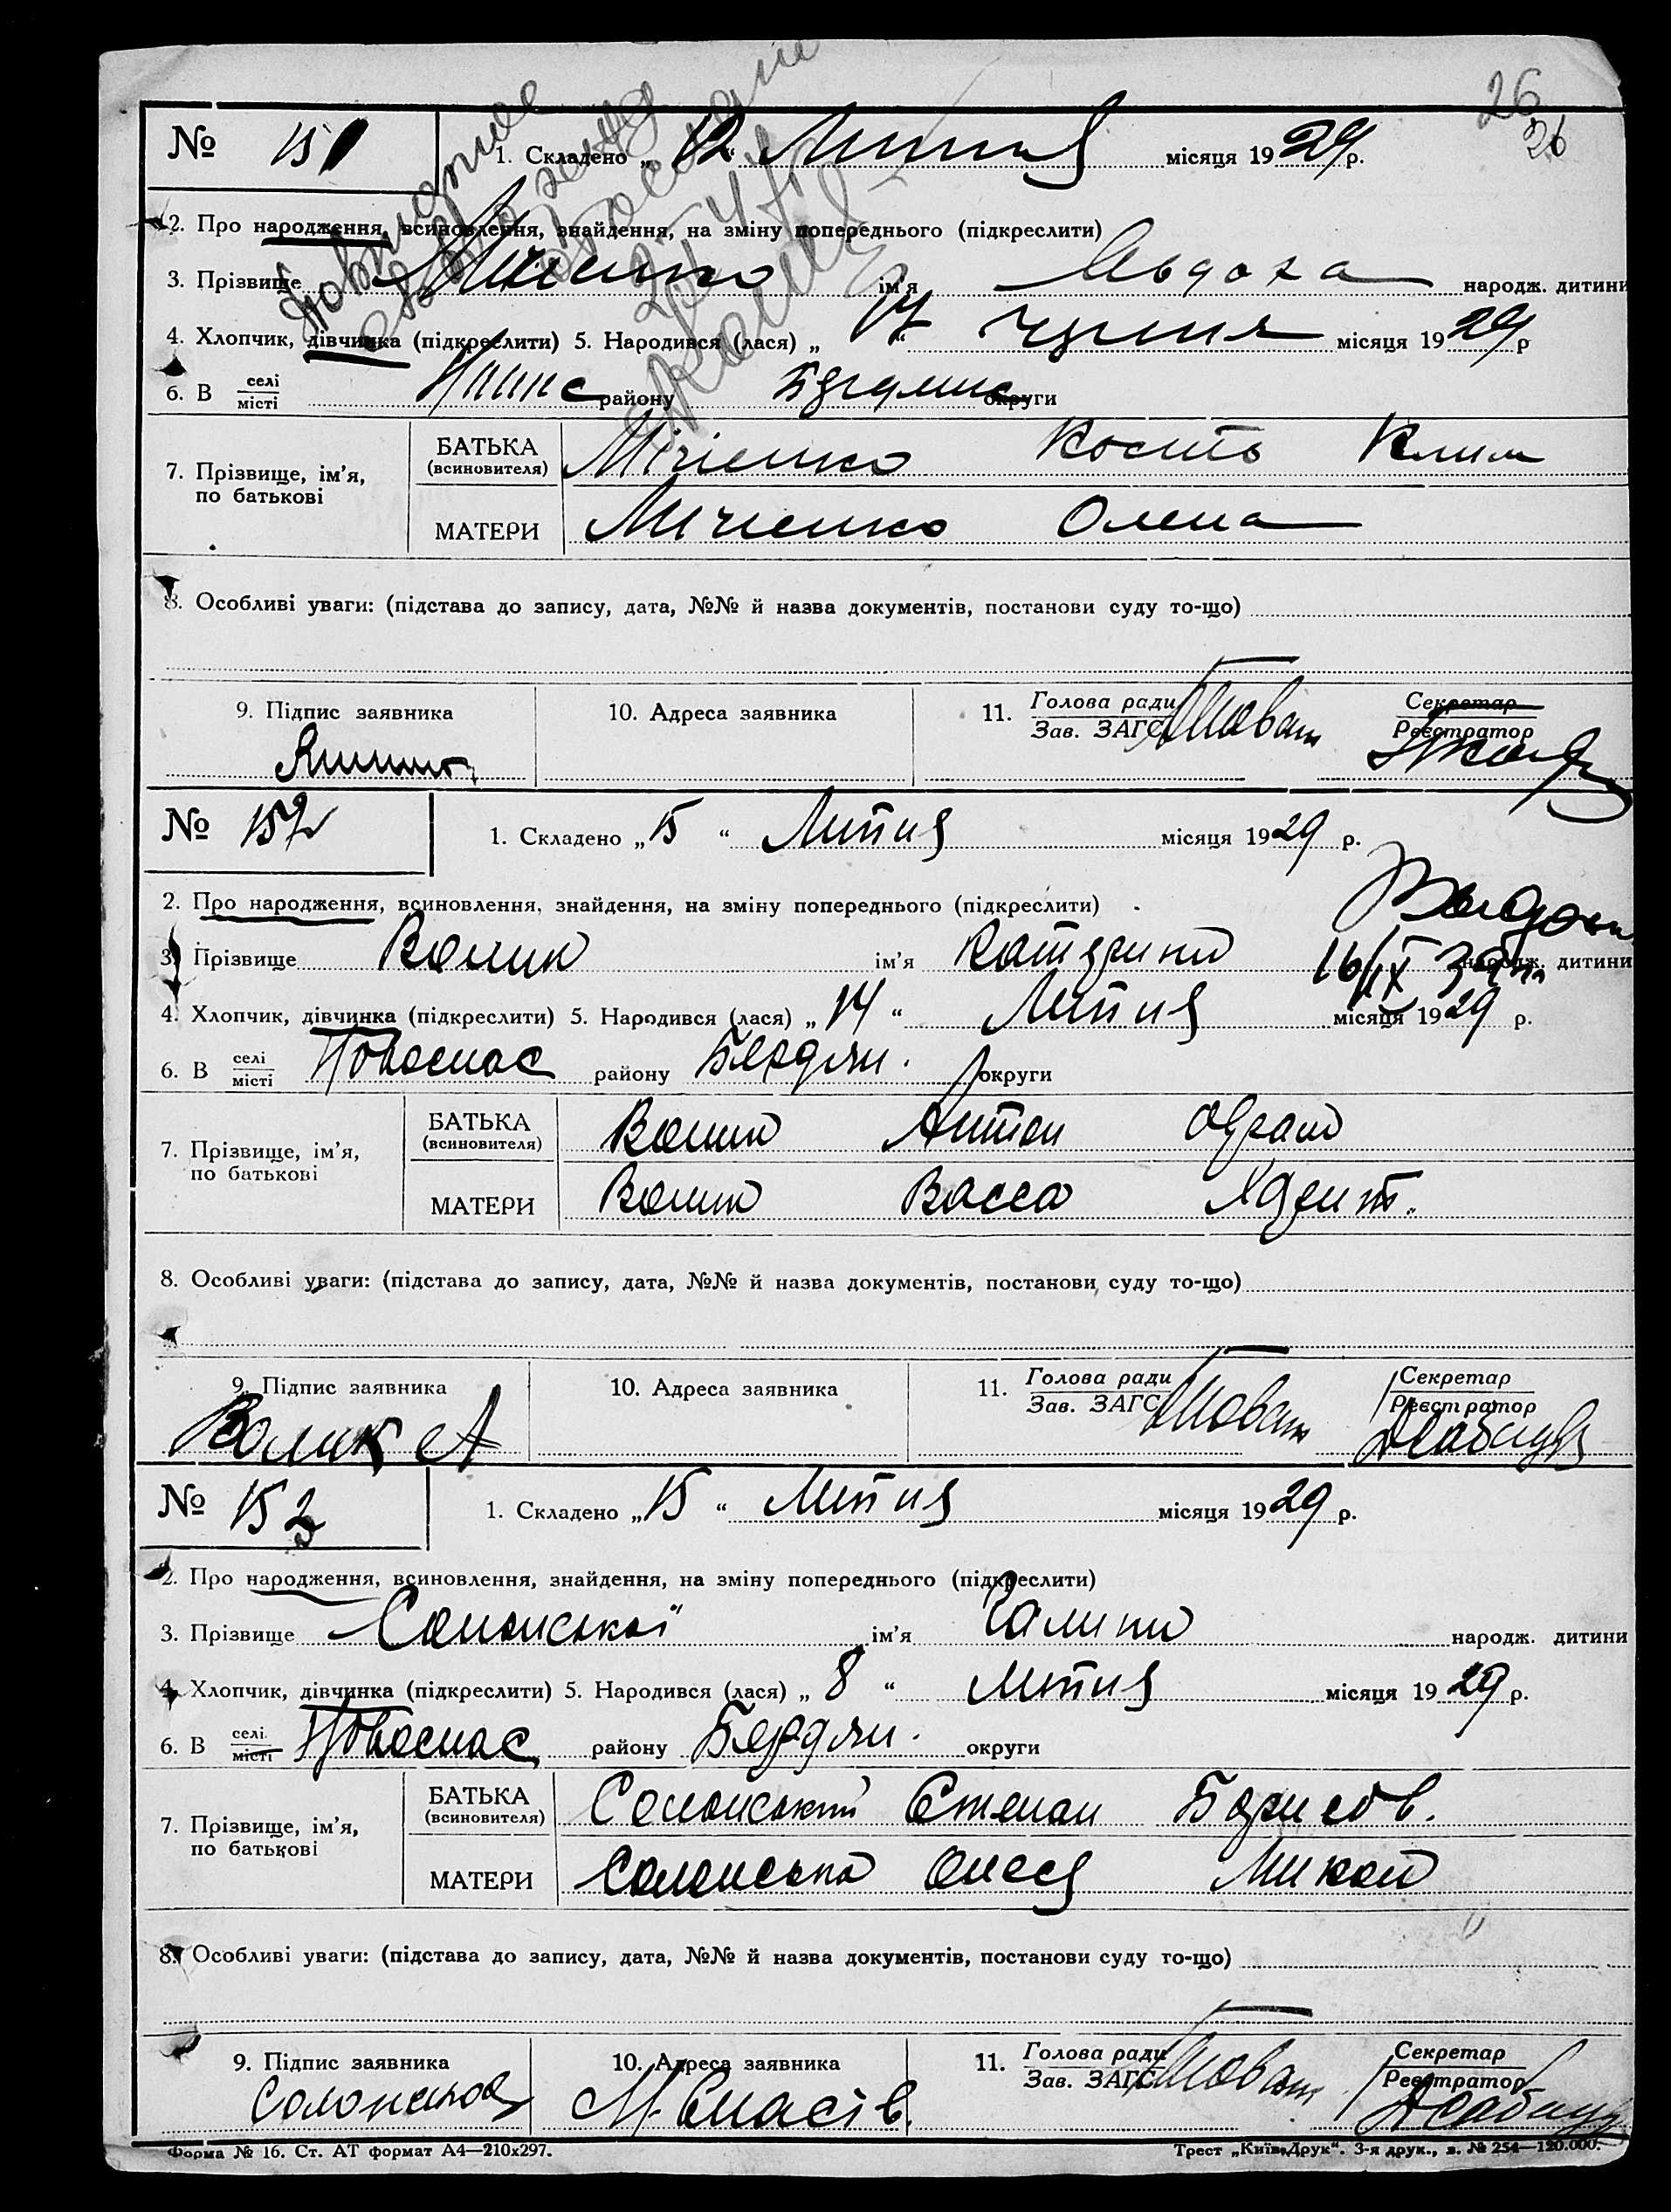 26
26
№ 151 1. Складено „ 12 “ Липня місяця 1929 р.
2. Про народження, всиновлення, знайдення, на зміну попереднього (підкреслити)
3. Прізвище Мігієнко ім'я Євдоха народж. дитини
4. Хлопчик, дівчинка (підкреслити) 5. Народився (лася) „ “ червня місяця 1929 р
6. В селі місті району округи
7. Прізвище, ім'я, по батькові
БАТЬКА (всиновителя) Мігієнко Кость Клим
МАТЕРИ Мігієнко Олена
8. Особливі уваги: (підстава до запису, дата, №№ й назва документів, постанови суду то-що)
9. Підпис заявника 10. Адреса заявника 11. Голова ради Зав. ЗАГС Секретар Реєстратор
№ 152 1. Складено „ 15 “ Липня місяця 1929 р.
2. Про народження, всиновлення, знайдення, на зміну попереднього (підкреслити)
3. Прізвище Волик ім'я Катерина народж. дитини
16/IX
4. Хлопчик, дівчинка (підкреслити) 5. Народився (лася) „ 14 “ Липня місяця 1929 р.
6. В селі місті Новоспас району Бердян. округи
7. Прізвище, ім'я, по батькові
БАТЬКА (всиновителя) Волик Антон
МАТЕРИ Волик Васса
8. Особливі уваги: (підстава до запису, дата, №№ й назва документів, постанови суду то-що)
9. Підпис заявника 10. Адреса заявника 11. Голова ради Зав. ЗАГС Секретар Реєстратор
Волик А
№ 153 1. Складено „ 15 “ Липня місяця 1929 р.
2. Про народження, всиновлення, знайдення, на зміну попереднього (підкреслити)
3. Прізвище Солонської ім'я Галина народж. дитини
4. Хлопчик, дівчинка (підкреслити) 5. Народився (лася) „ 8 “ Липня місяця 1929 р.
6. В селі місті Новоспас району Бердян. округи
7. Прізвище, ім'я, по батькові
БАТЬКА (всиновителя) Солонський Степан Борисов.
МАТЕРИ Солонська Олеся Микол
8. Особливі уваги: (підстава до запису, дата, №№ й назва документів, постанови суду то-що)
9. Підпис заявника 10. Адреса заявника 11. Голова ради Зав. ЗАГС Секретар Реєстратор
Форма № 16. Ст. АТ формат А4—210х297. Трест „Київ-Друк“. 3-я друк., з. № 254—120.000.